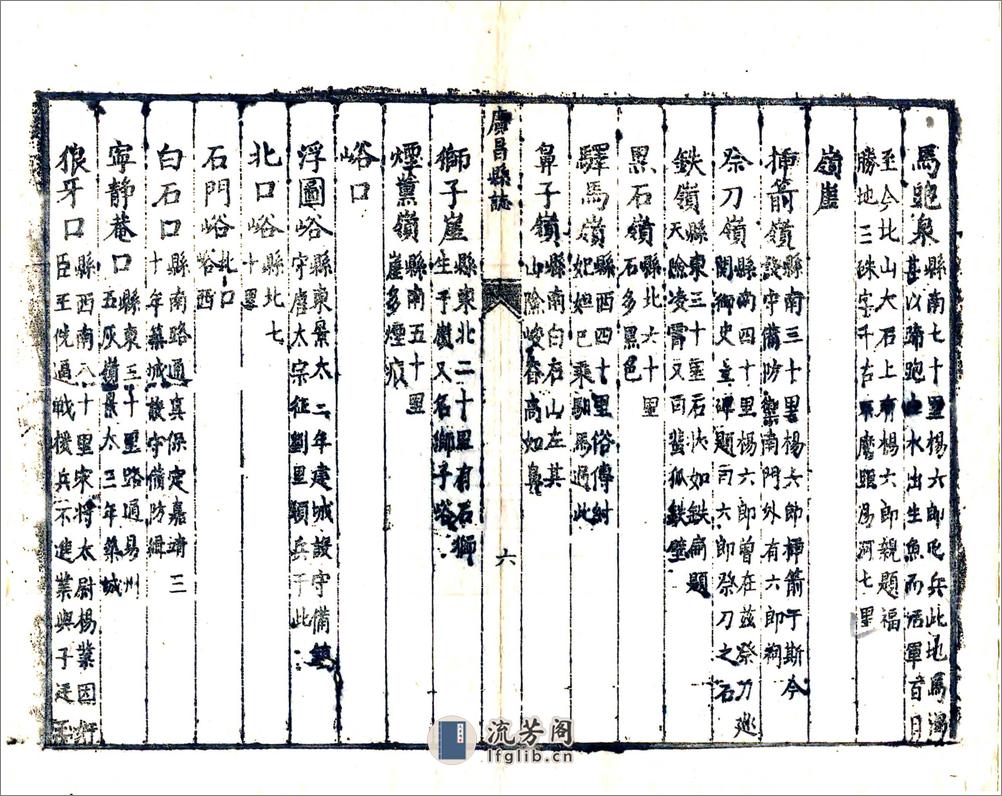 馬跑泉縣南七十里楊六郎屯兵此地馬渴
甚以蹄跑山水出生魚而活軍百日
至今北山大石上有楊六郎親題福
勝地三硃字千古不磨距易河七里
嶺崖
插箭嶺縣南三十里楊六郎插箭于斯今
設守備防禦南門外有六郎祠
祭刀嶺縣南四十里楊六郎曾在茲祭刀巡
関御史立碑題曰六郎祭刀之石
鉄嶺縣東三十里石状如鉄 題
天險凌霄又曰蜚狐鉄壁
黑石嶺縣北六十里
石多黑色
驛馬嶺縣西四十里俗傳紂
妃妲巳乘馹馬過此
鼻子嶺縣南白石山左其
山險峻脊高如鼻
廣昌縣誌
六
獅子崖縣東北二十里有石獅
生于巖又名獅子峪
煙薰嶺縣南五十里
崖多煙痕
峪口
浮圖峪縣東景太二年建城設守備鎮
守唐太宗征劉黑闥兵于此
北口峪縣北七
十里
石門峪北口
峪西
白石口縣南路通真保定嘉靖三
十年築城設守備防緝
寧静菴口縣東三十里路通易州
五灰嶺景太三年築城
狼牙口縣西南八十里宋將太尉楊業因奸
臣王侁逼戦撥兵不進業與子延
流芳阁
lfglib.cn